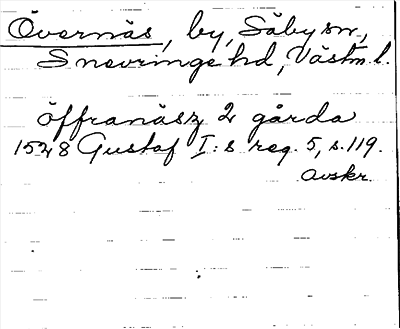 Övernäs, by, Säby sn,
Snevringe hd, Västm. l.
öffranäsz 2 gårda
1528 Gustaf I:s reg. 5, s. 119.
Avskr.